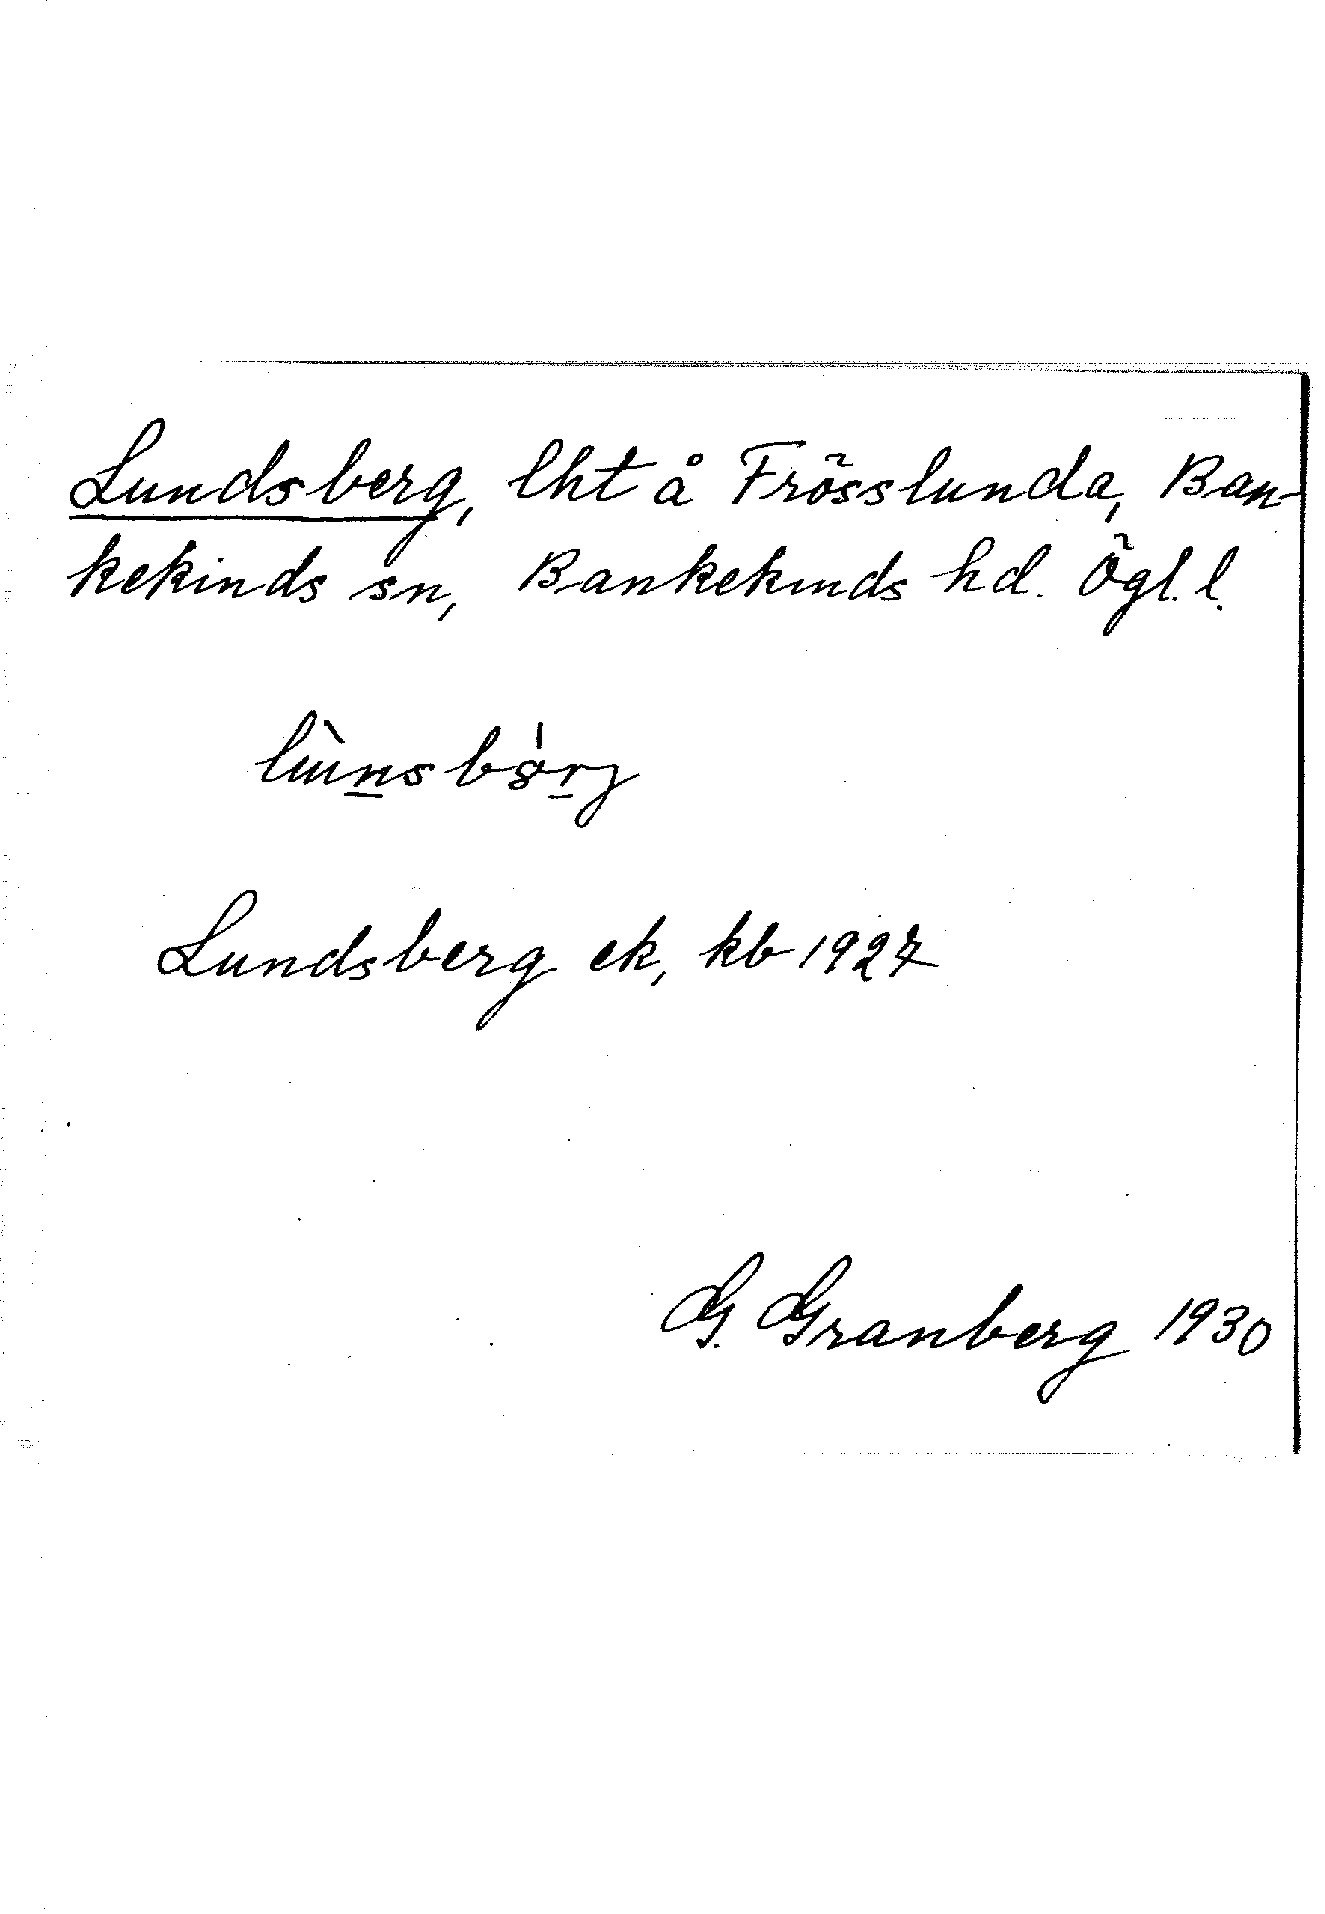 Lundsberg, lht å Frösslunda, Ban-
kekinds sn, Bankekinds hd. Ögl. l.
Lundsberg ek, kb 1927
G. Granberg 1930